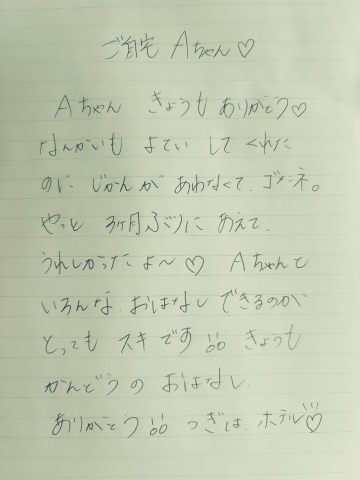 ご自宅 Aちゃん♡
Aちゃん きょうも ありがとう♡
なんかいも よてい して くれた
のに じかんが あわなくて、ゴメンネ。
やっと 3ヶ月ぶりに あえて、
うれしかったよ〜♡ Aちゃんと
いろんな、おはなし できるのが、
とっても スキです きょうも
かんどうの おはなし、
ありがとう つぎは、ホテル♡